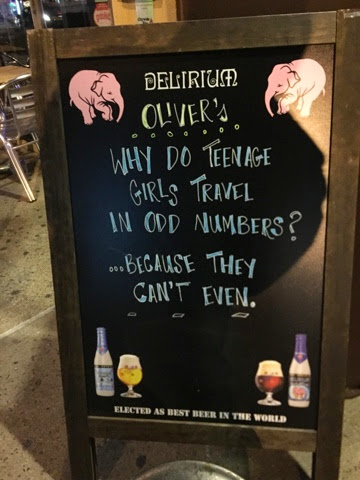 DELIRIUM
OLIVER'S
WHY DO TEENAGE
GIRLS TRAVEL
IN ODD NUMBERS?
...BECAUSE THEY
CAN'T EVEN.
ELECTED AS BEST BEER IN THE WORLD